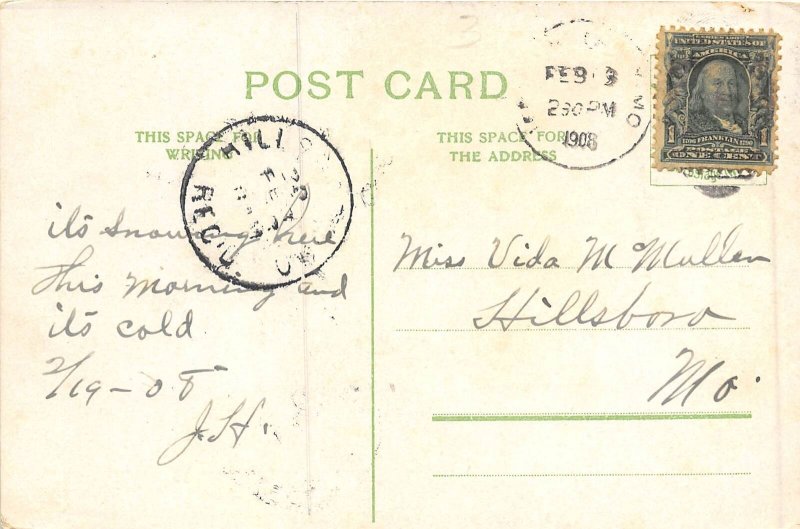 POST CARD
THIS SPACE FOR
WRITING
THIS SPACE FOR
THE ADDRESS
its snowing here
this morning and
its cold
2/19-08
J.H.
Miss Vida McMullen
Hillsboro
Mo.
HILLSBORO
MO
REC'D
FEB
230 PM
1908
MO
SERIES 1902
UNITED STATES OF
AMERICA
1
1706 FRANKLIN 1790
1
POSTAGE
ONE CENT
3